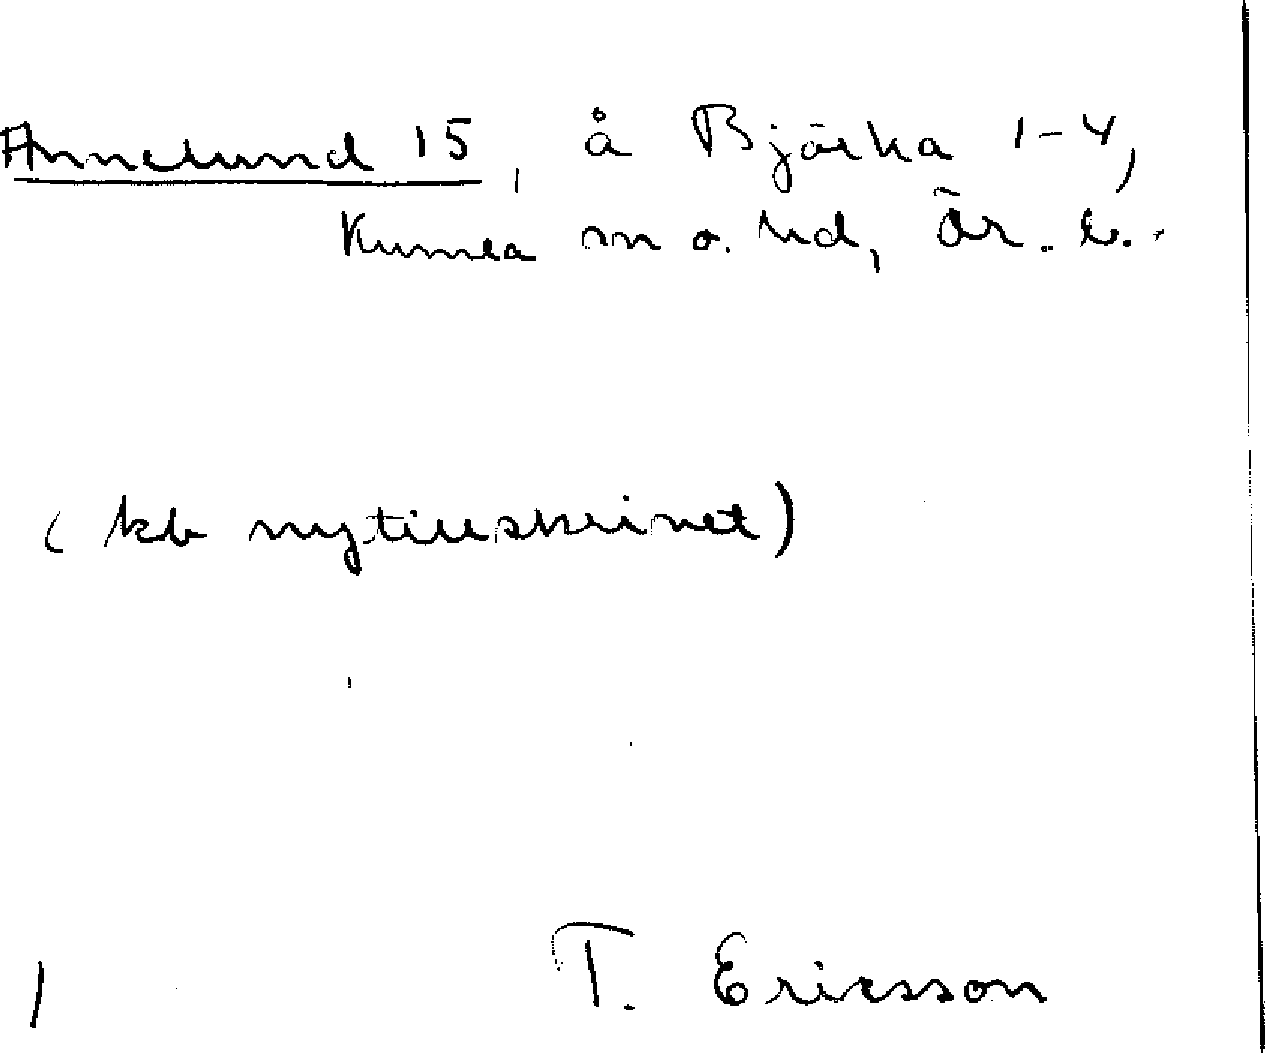 Annelund 15, å Bjärka 1-4,
Kumla sn o. hd, Är. l.
(kb nytillskrivet)
T. Ericsson